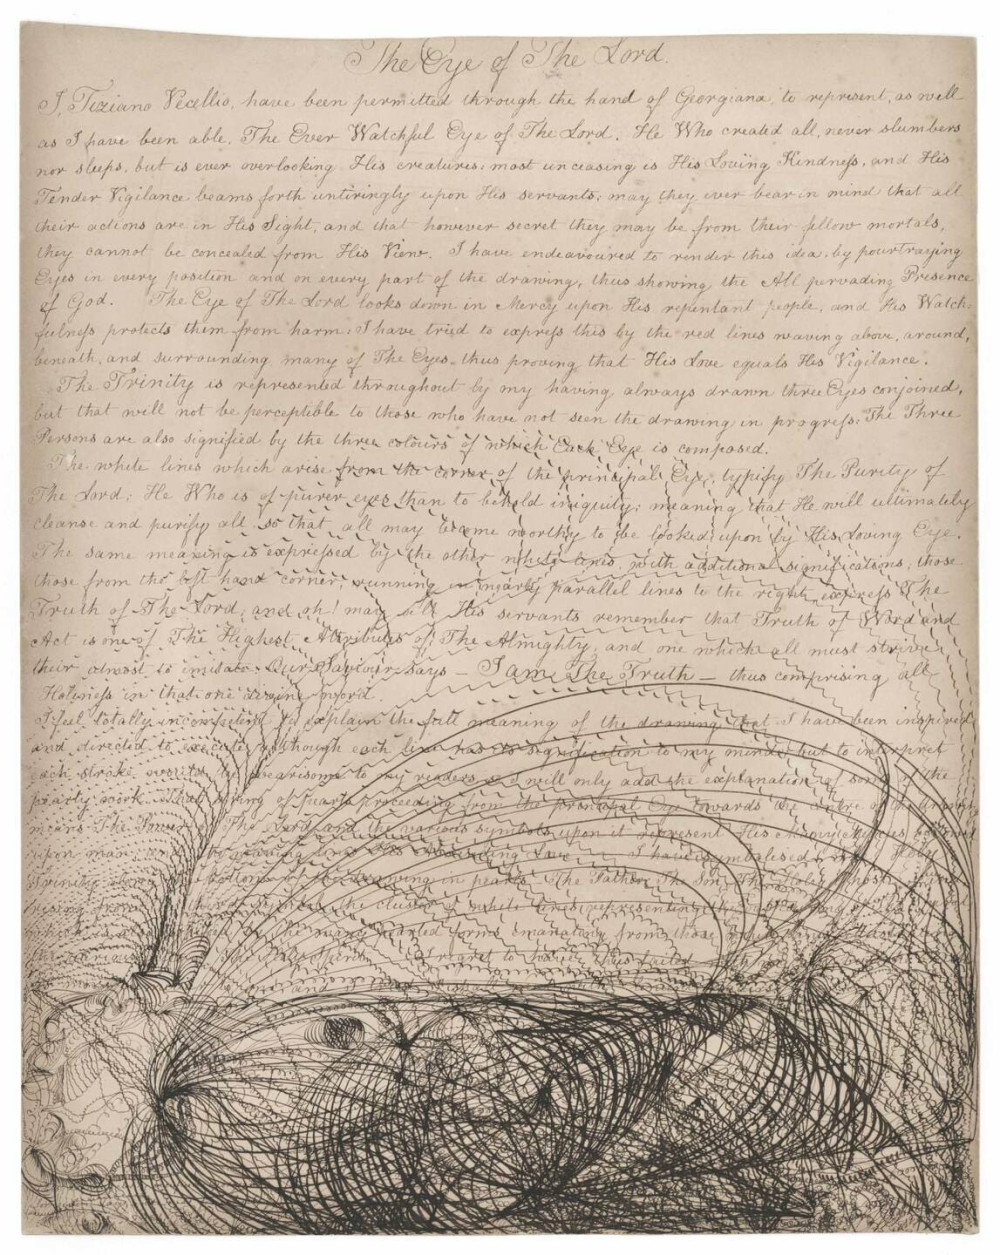 The Eye of The Lord.
I, Tiziano Vecellio, have been permitted through the hand of Georgiana, to represent, as well
as I have been able, The Ever Watchful Eye of The Lord. He Who created all, never slumbers
nor sleeps, but is ever overlooking His creatures; most unceasing is His Loving Kindness, and His
Tender Vigilance beams forth untiringly upon His servants; may they ever bear in mind that all
their actions are in His Sight, and that however secret they may be from their fellow mortals,
they cannot be concealed from His View. I have endeavoured to render this idea, by pourtraying
Eyes in every position and on every part of the drawing, thus showing the All pervading Presence
of God. The Eye of The Lord looks down in Mercy upon His repentant people, and His Watch-
fulness protects them from harm: I have tried to express this by the red lines waving above, around,
beneath, and surrounding many of The Eyes, thus proving that His Love equals His Vigilance.
The Trinity is represented throughout by my having always drawn three Eyes conjoined,
but that will not be perceptible to those who have not seen the drawing in progress: The Three
Persons are also signified by the three colours of which Each Eye is composed.
The white lines which arise from the corner of the principal Eye, typify The Purity of
The Lord; He Who is of purer eyes than to behold iniquity; meaning that He will ultimately
cleanse and purify all, so that all may become worthy to be looked upon by His Loving Eye.
The same meaning is expressed by the other white lines, with additional significations, those
those from the left hand corner, running in nearly parallel lines to the right, express The
Truth of The Lord; and oh! may all His servants remember that Truth of Word and
Act is one of The Highest Attributes of The Almighty, and one which all must strive
their utmost to imitate. Our Saviour says – I am The Truth – thus comprising all
Holiness in that one divine word.
I feel totally incompetent to explain the full meaning of the drawing that I have been inspired
and directed to execute, although each line has its signification to my mind, but to interpret
each stroke would be wearisome to my readers so I will only add the explanation of some of the
pearly work. That string of pearls proceeding from the principal Eye towards the centre of the drawing
means The Power The Lord, and the various symbols upon it represent His Many Mercies
upon man; Love I have symbolised Holy
Trinity bottom of the drawing in pearls. The Father, The Son, The Holy Ghost
rising from the cluster of white lines representing
forms emanating from those
I regret to